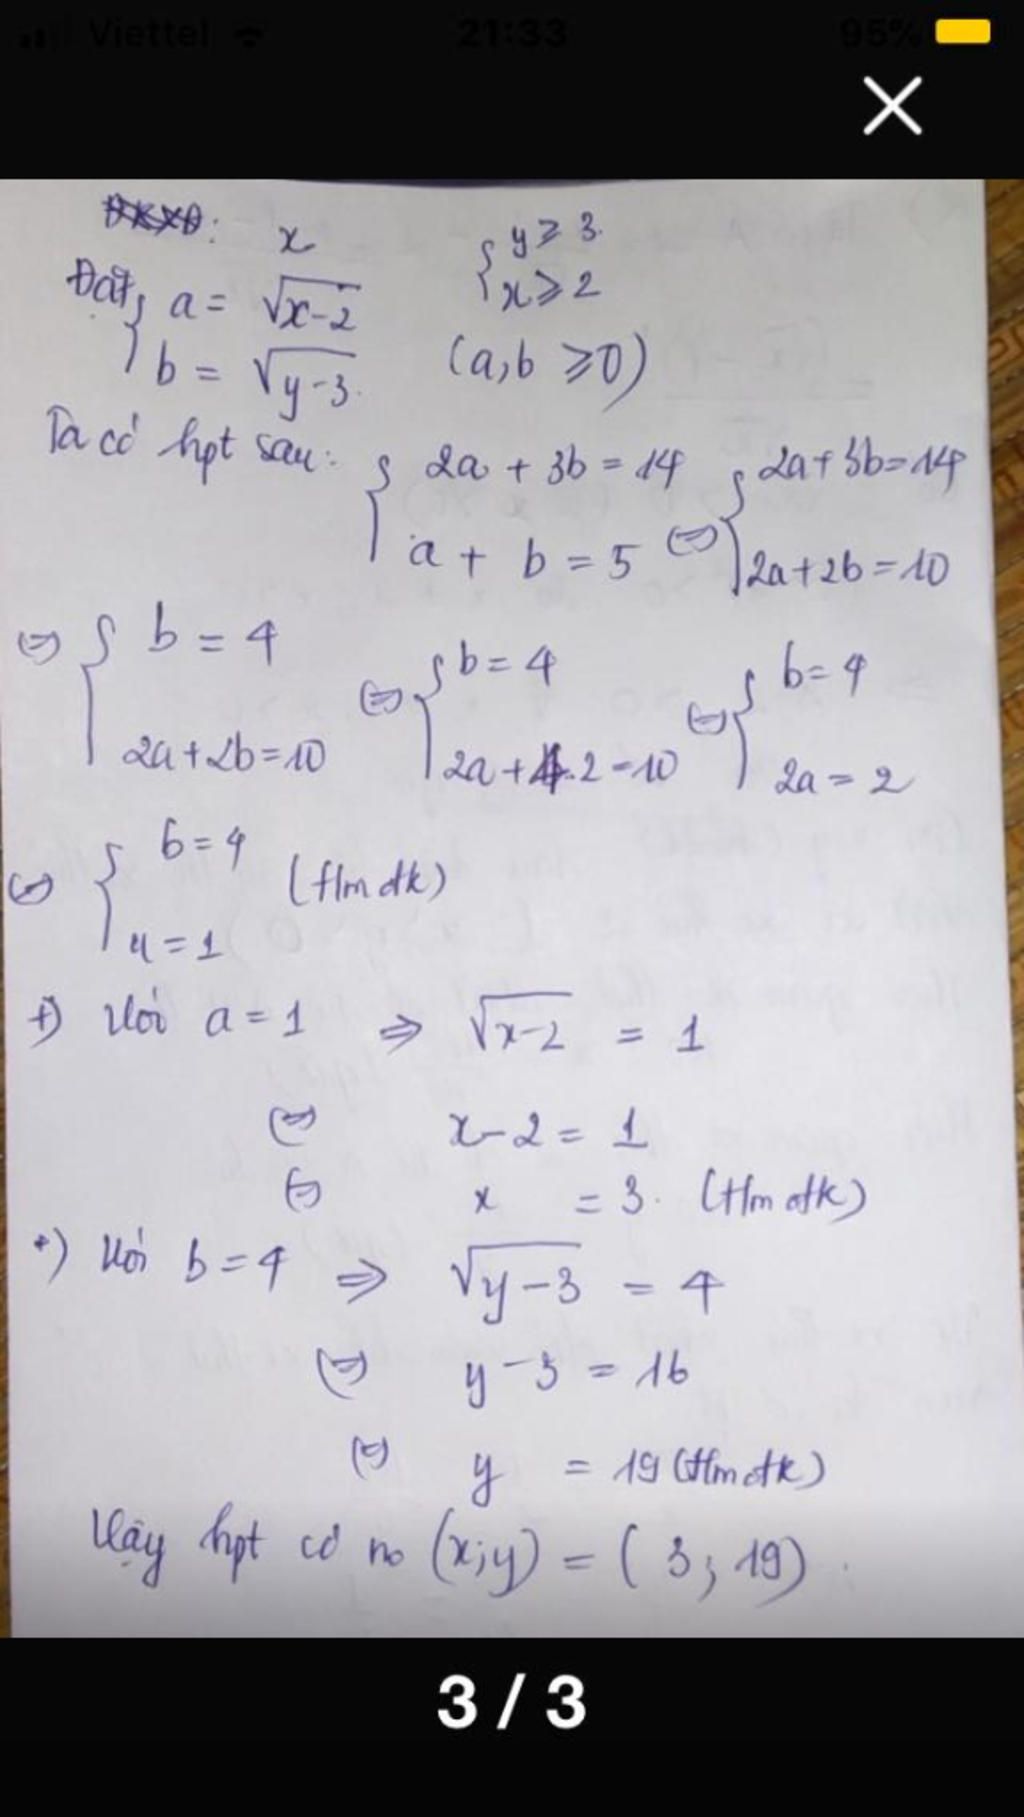 Viettel 21:33 95%
ĐKXĐ: x { y ≥ 3.
Đặt { a = √x-2 x ≥ 2
b = √y-3. (a,b ≥ 0)
Ta có hpt sau: { 2a + 3b = 14 { 2a + 3b = 14
a + b = 5 (=) 2a + 2b = 10
(=) { b = 4 (=) { b = 4 (=) { b = 4
2a + 2b = 10 2a + 4.2 = 10 2a = 2
(=) { b = 4 (t/m đk)
a = 1
+) Với a = 1 => √x-2 = 1
(=) x - 2 = 1
(=) x = 3. (t/m đk)
+) Với b = 4 => √y-3 = 4
(=) y - 3 = 16
(=) y = 19 (t/m đk)
Vậy hpt có no (x;y) = (3; 19).
3 / 3